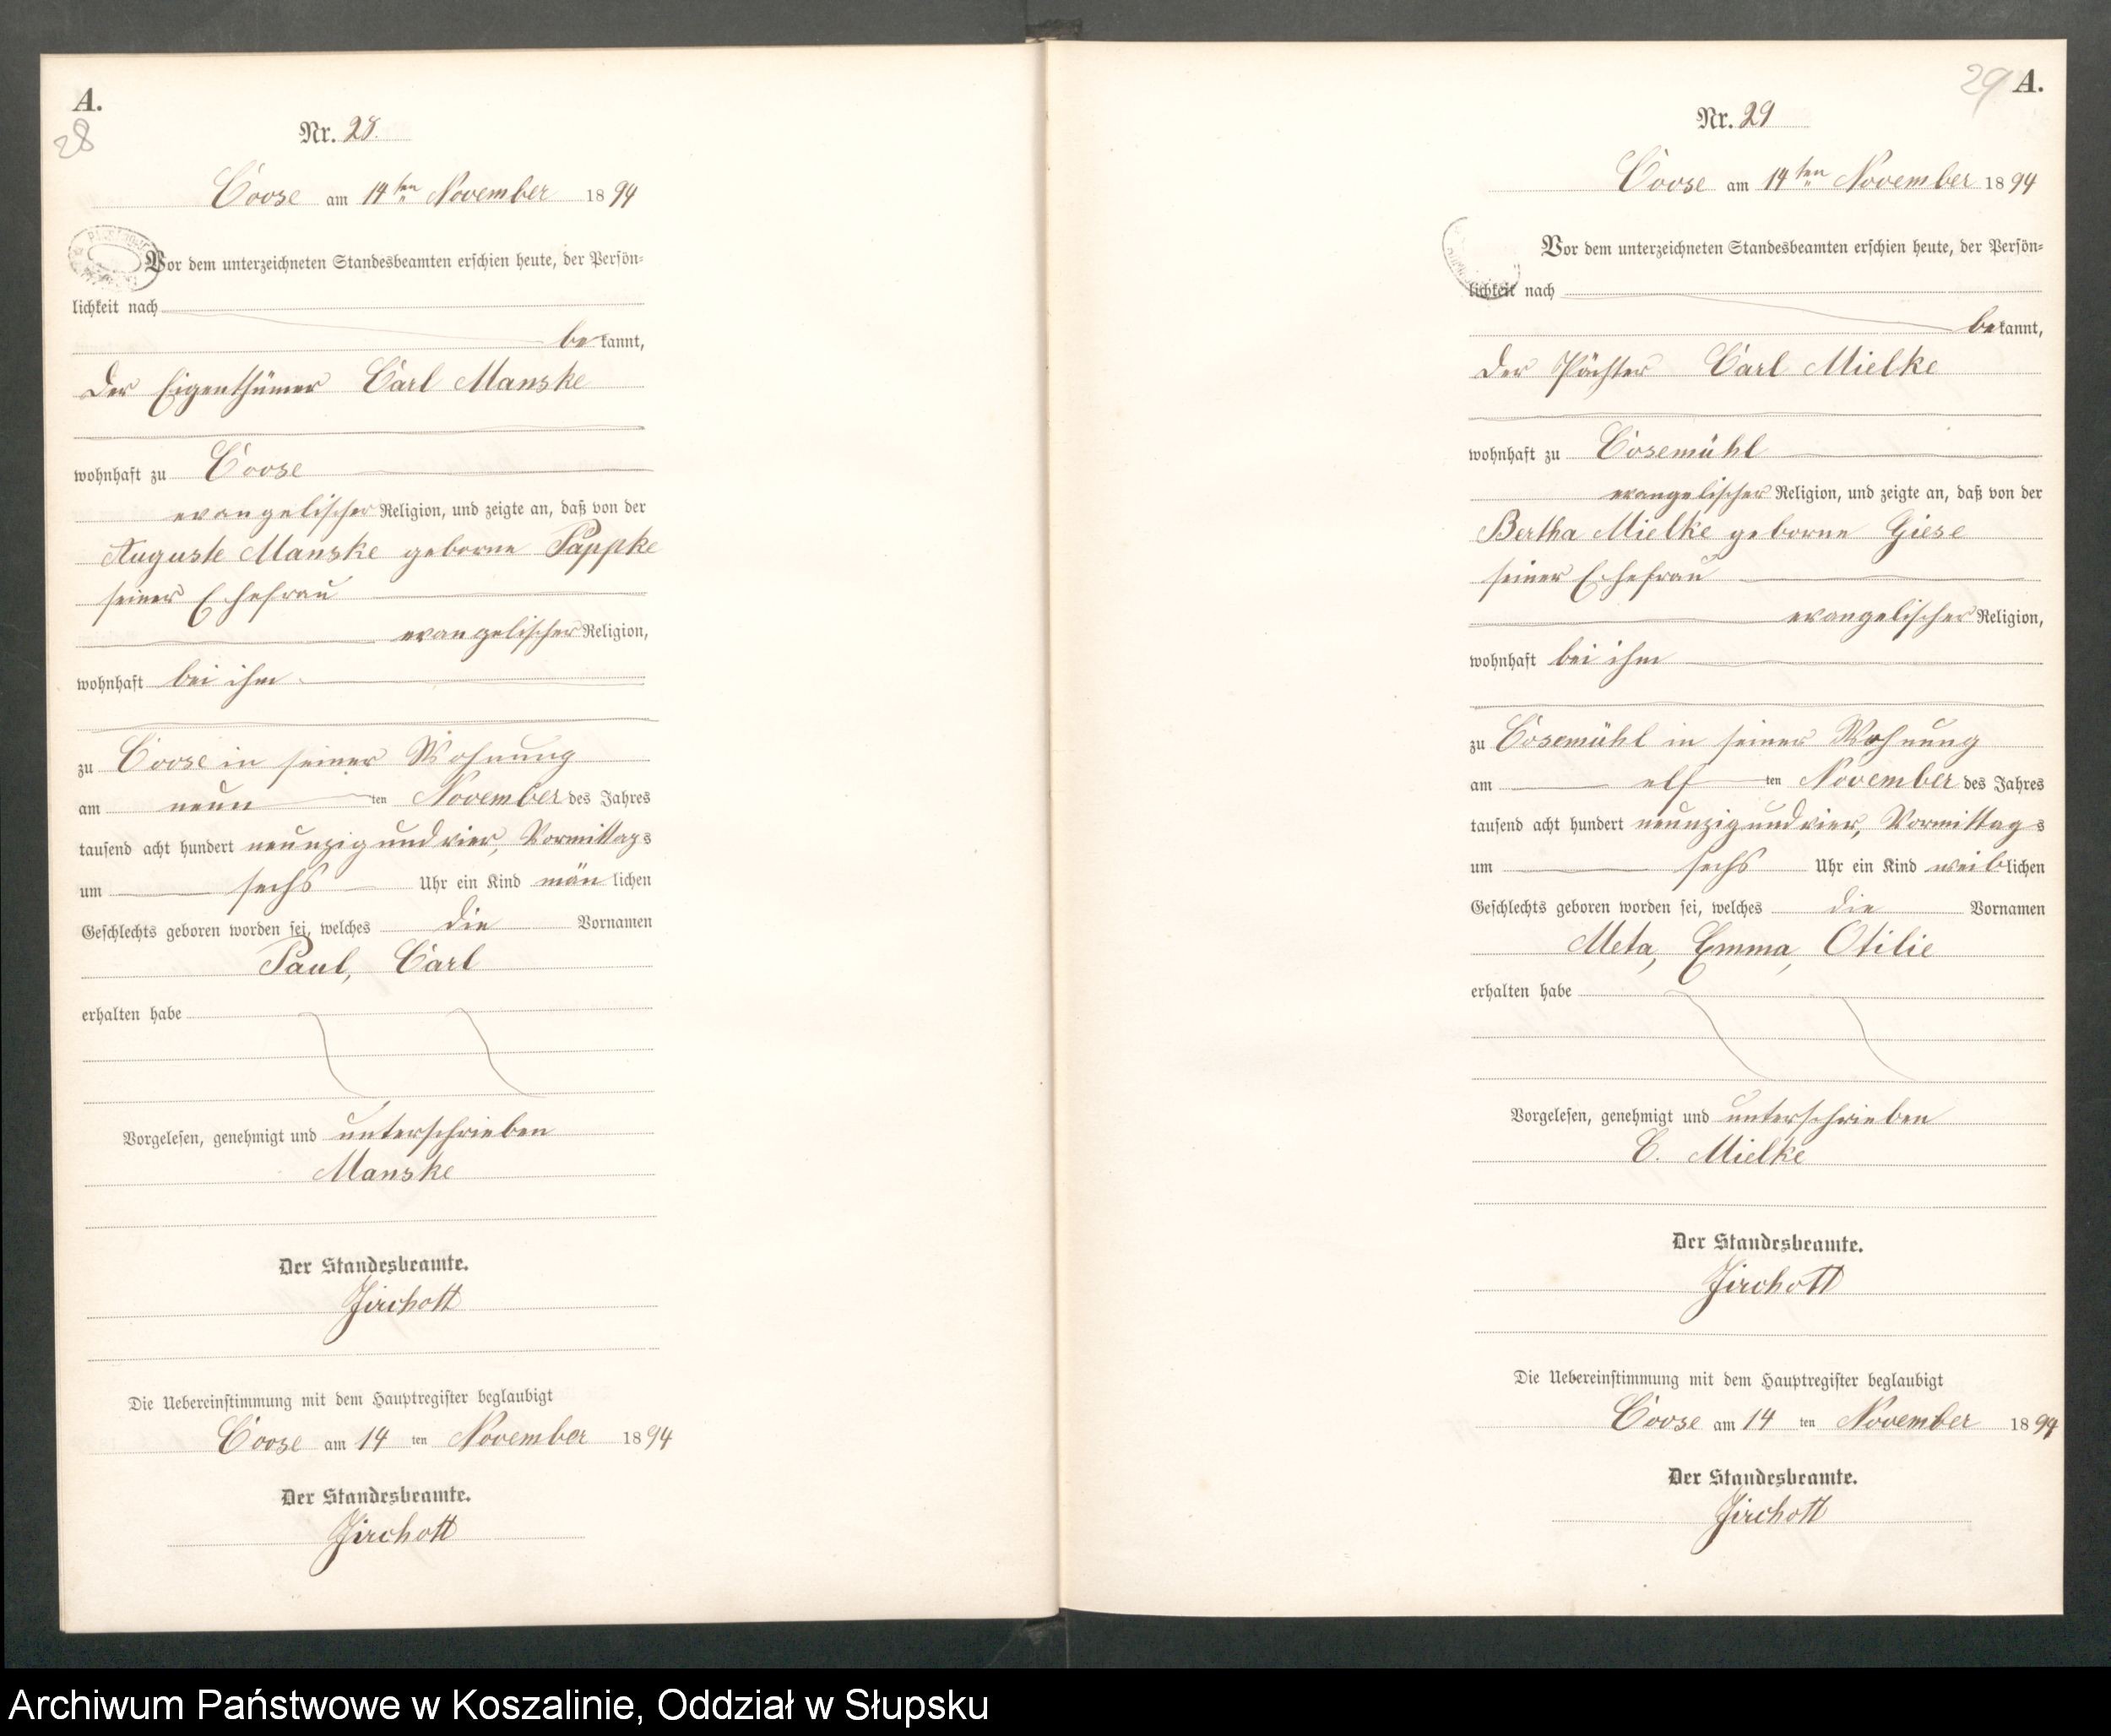 A.
28
Nr. 28.
Coose am 14ten November 1894
Vor dem unterzeichneten Standesbeamten erschien heute, der Persön-
lichkeit nach
bekannt,
der Eigenthümer Carl Manske
wohnhaft zu Coose
evangelischer Religion, und zeigte an, daß von der
Auguste Manske geborne Pappke
seiner Ehefrau
evangelischer Religion,
wohnhaft bei ihm
zu Coose in seiner Wohnung
am neun ten November des Jahres
tausend acht hundert neunzig und vier, Vormittags
um sechs Uhr ein Kind mänlichen
Geschlechts geboren worden sei, welches die Vornamen
Paul, Carl
erhalten habe
Vorgelesen, genehmigt und unterschrieben
Manske
Der Standesbeamte.
Jirchott
Die Uebereinstimmung mit dem Hauptregister beglaubigt
Coose am 14 ten November 1894
Der Standesbeamte.
Jirchott
29 A.
Nr. 29
Coose am 14ten November 1894
Vor dem unterzeichneten Standesbeamten erschien heute, der Persön-
lichkeit nach
bekannt,
der Pächter Carl Mielke
wohnhaft zu Cosemühl
evangelischer Religion, und zeigte an, daß von der
Bertha Mielke geborne Giese
seiner Ehefrau
evangelischer Religion,
wohnhaft bei ihm
zu Cosemühl in seiner Wohnung
am elf ten November des Jahres
tausend acht hundert neunzig und vier, Vormittags
um sechs Uhr ein Kind weiblichen
Geschlechts geboren worden sei, welches die Vornamen
Meta, Emma, Otilie
erhalten habe
Vorgelesen, genehmigt und unterschrieben
C. Mielke
Der Standesbeamte.
Jirchott
Die Uebereinstimmung mit dem Hauptregister beglaubigt
Coose am 14 ten November 1894
Der Standesbeamte.
Jirchott
Archiwum Państwowe w Koszalinie, Oddział w Słupsku